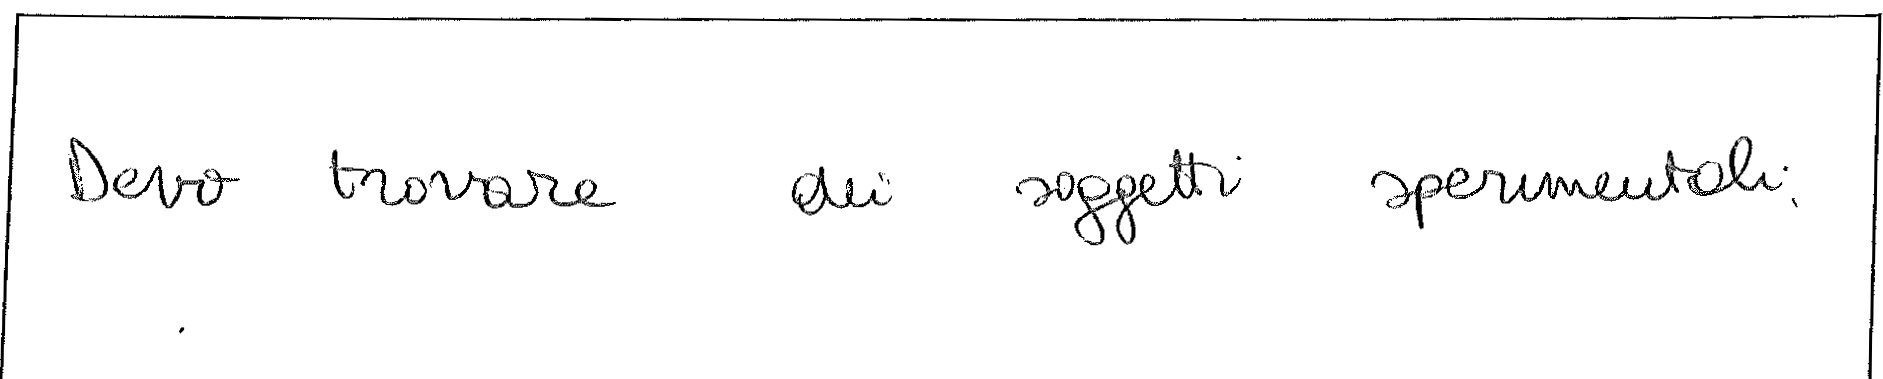 Devo trovare dei soggetti sperimentali.